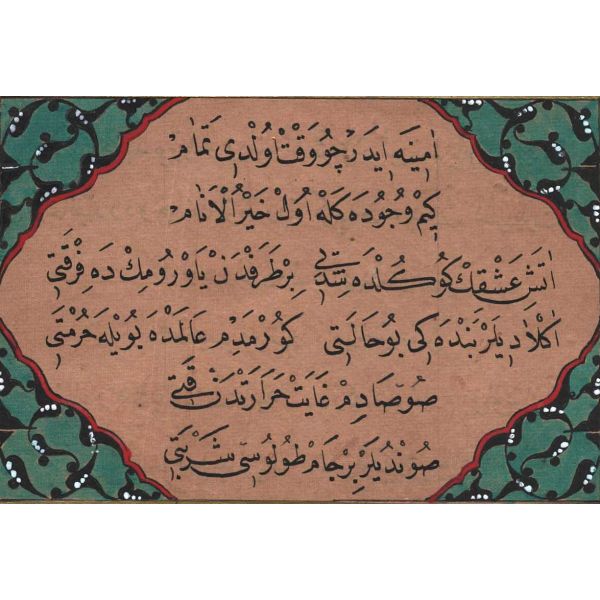 اٰمِينَه اِيدَر چُو وَقْت اُولْدِي تَمَام
كِيم وُجُودَه كَلَه اُولْ خَيْرُ الْاَنَام
اٰتَشِ عَشْقِكْ كُوكُلْدَه شِدَّتِي بِرْ طَرَفْدَنْ يَاوْرُومِكْ دَه فِرْقَتِي
اَكْلَادِيلَرْ بَنْدَه كِي بُو حَالَتِي كُورْمَدِمْ عَالَمْدَه بُويْلَه حُرْمَتِي
صُوصَادِمْ غَايَتْ حَرَارَتْدَنْ قَتِي
صُونْدِيلَرْ بِرْ جَامْ طُولُوسِي شَرْبَتِي